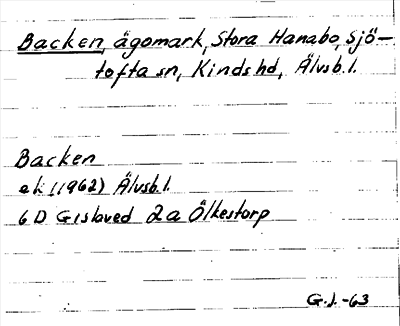 Backen, ägomark, Stora Hanabo, Sjö-
tofta sn, Kinds hd, Älvsb. l.
Backen
ek (1962) Älvsb. l.
6 D Gislaved 2a Ölkestorp
G.J. -63